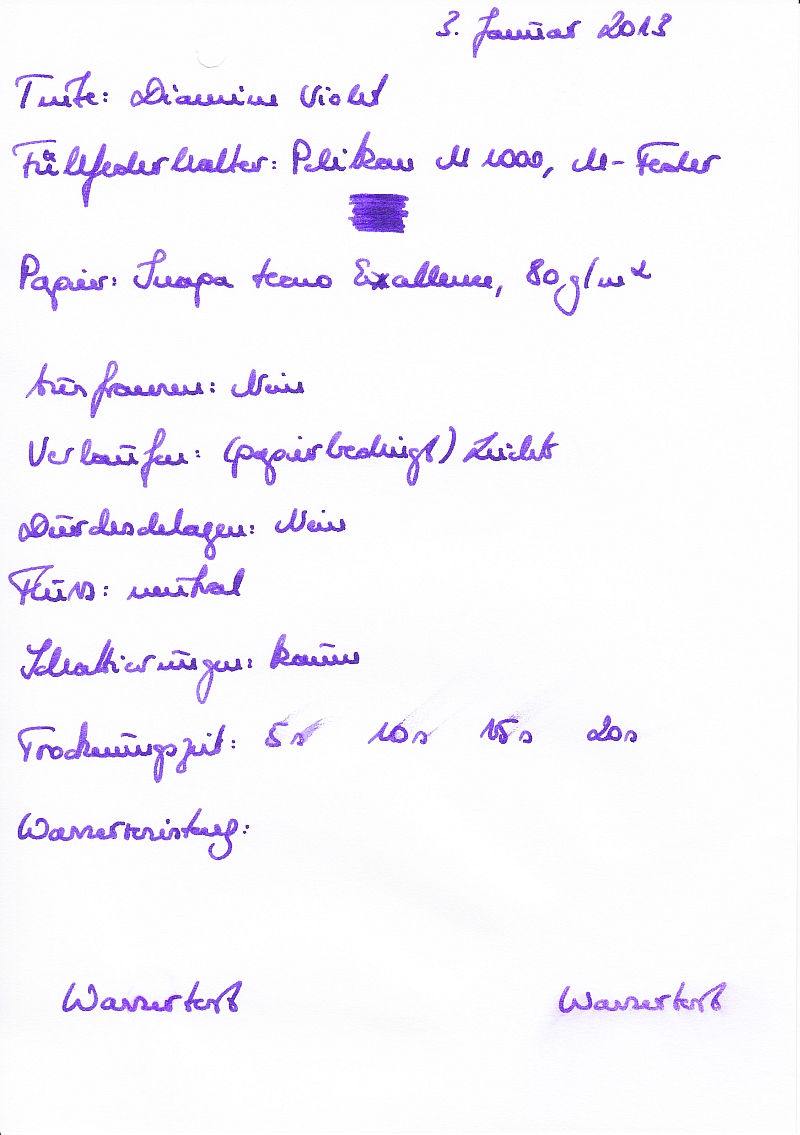 3. Januar 2013
Tinte: Diamine Violet
Füllfederhalter: Pelikan M 1000, M-Feder
Papier: Inapa tecno Excellence, 80 g/m²
Ausfransen: Nein
Verlaufen: (papierbedingt) Leicht
Durchschlagen: Nein
Fluss: neutral
Schattierungen: kaum
Trocknungszeit: 5s 10s 15s 20s
Wasserfestung:
Wassertest Wassertest